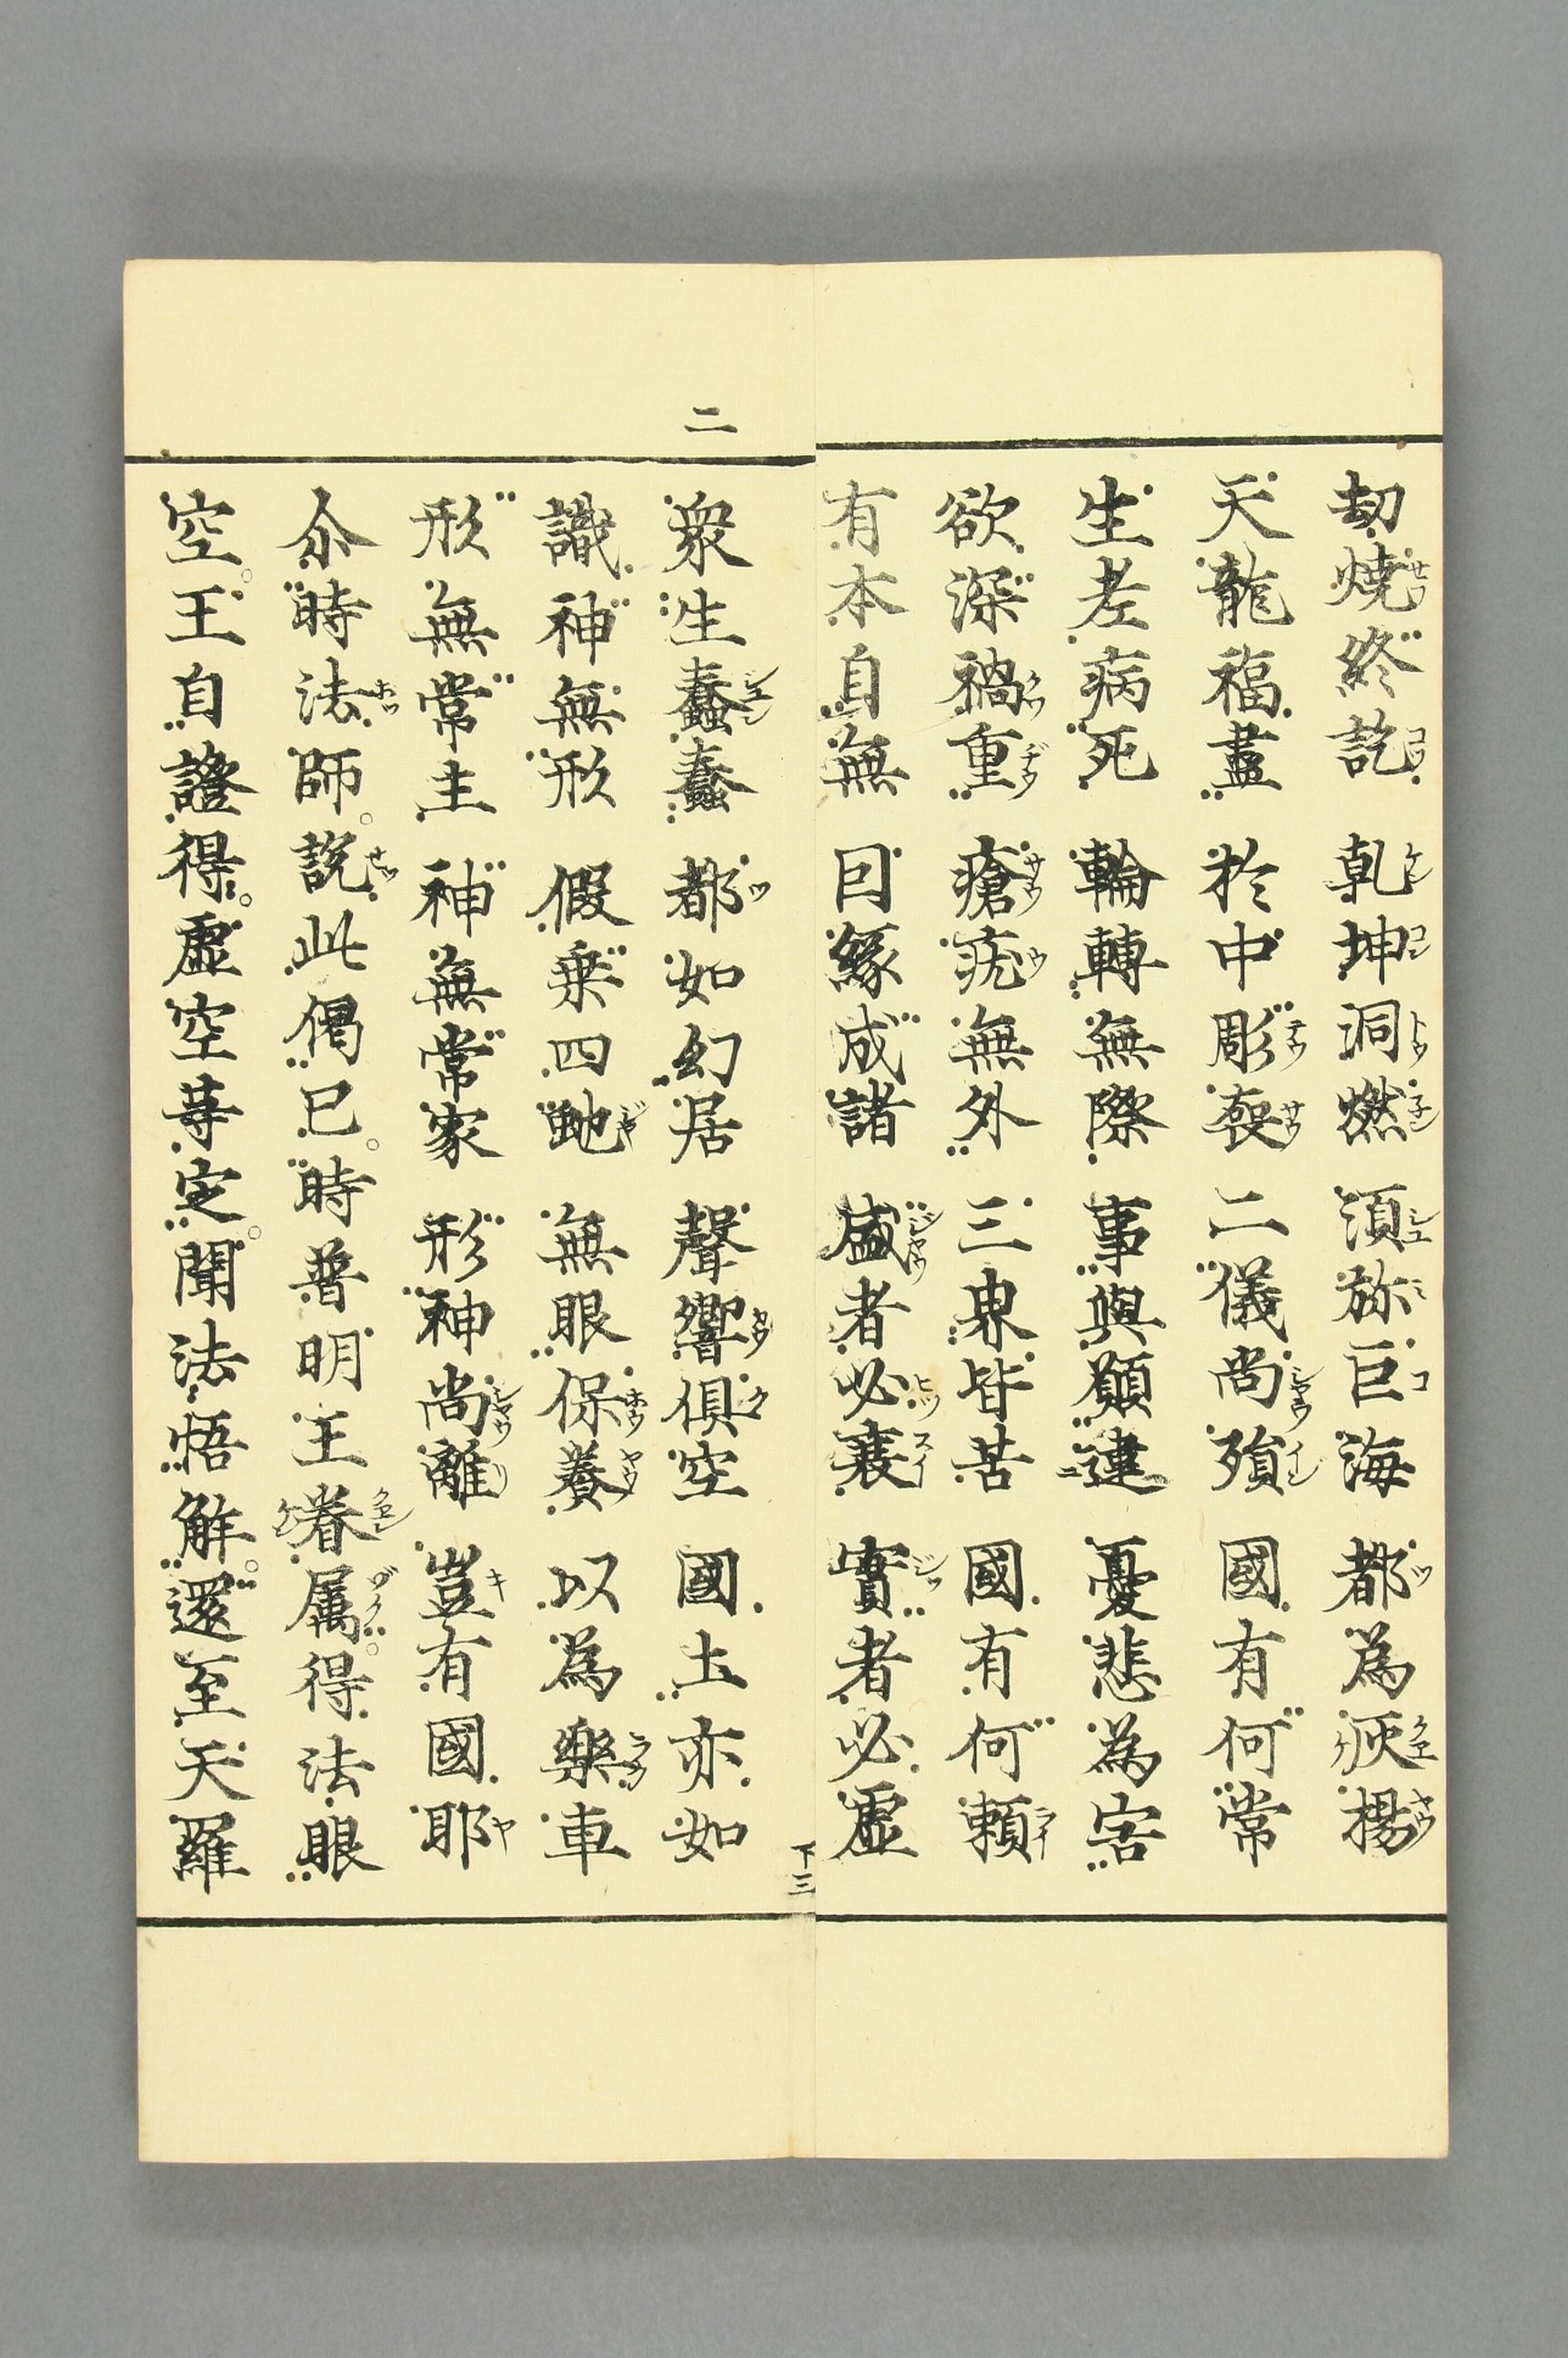 劫燒終訖　乾坤洞燃　湏弥巨海　都為灰揚
天龍福盡　於中彫喪　二儀尚殞　國有何常
生老病死　輪轉無際　事與願違　憂悲為害
欲深禍重　瘡疣無外　三界皆苦　國有何頼
有本自無　因緣成諸　盛者必衰　實者必虚
下三
二
衆生蠢蠢　都如幻居　聲響俱空　國土亦如
識神無形　假乗四虵　無眼保養　以為樂車
形無常主　神無常家　形神尚離　豈有國耶
尒時法師。說此偈已。時普明王眷属。得法眼
空。王自證得。虚空等定。聞法悟解。還至天羅